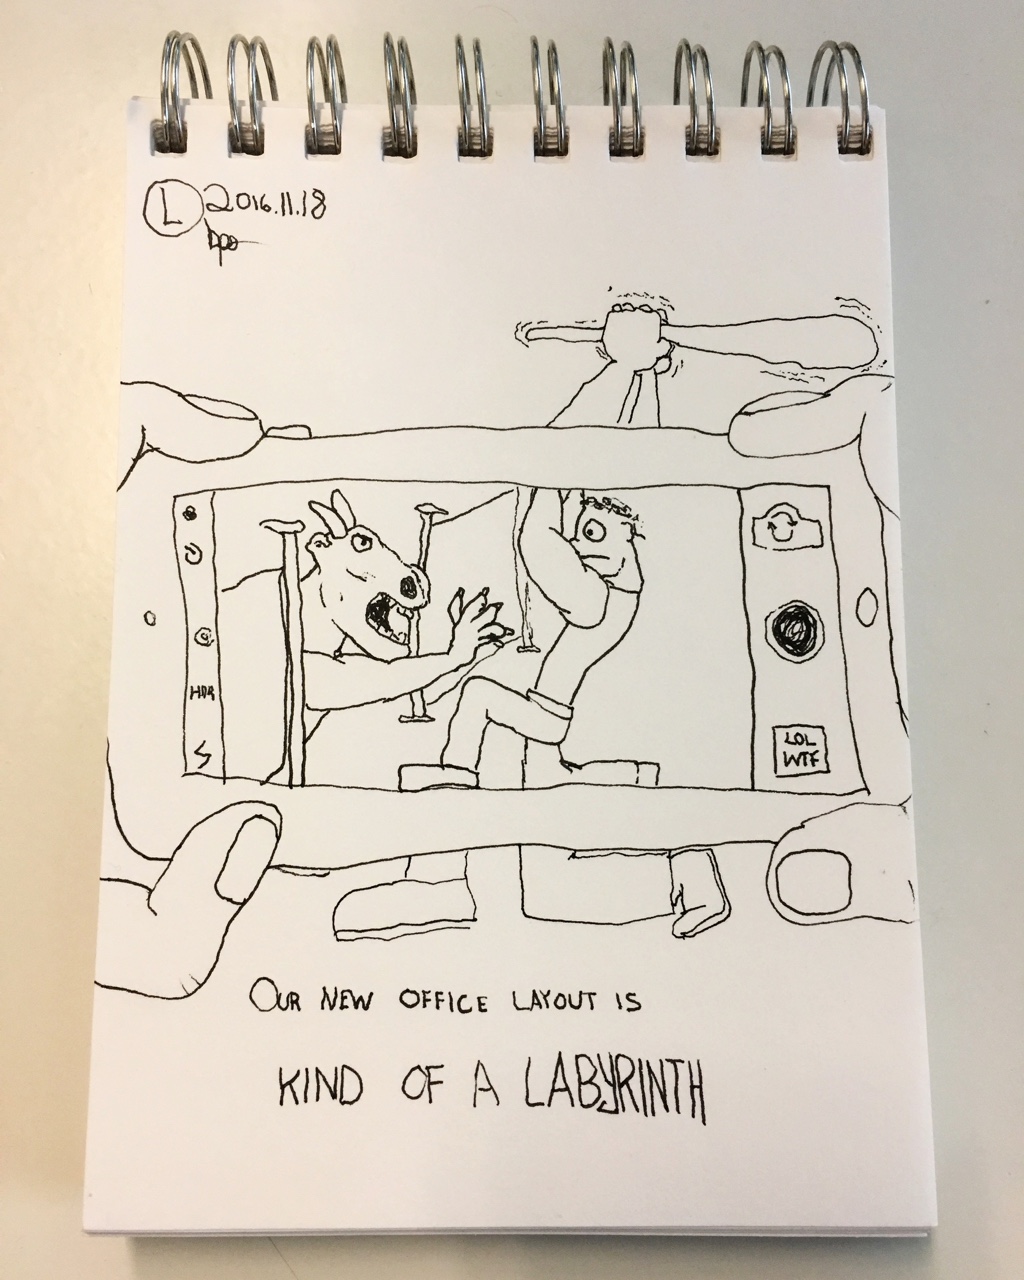 L 2016.11.18
HDR
LOL
WTF
OUR NEW OFFICE LAYOUT IS
KIND OF A LABYRINTH